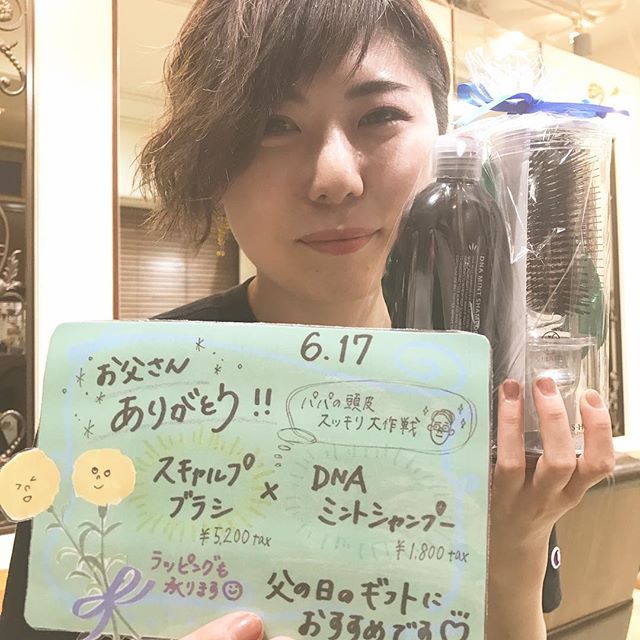 6.17
お父さん
ありがとう!!
パパの頭皮
スッキリ大作戦
スキャルプ
ブラシ
¥5,200 tax
×
DNA
ミントシャンプー
¥1,800 tax
ラッピングも
承ります
父の日のギフトに
おすすめです♡
DNA MINT SHAMPOO